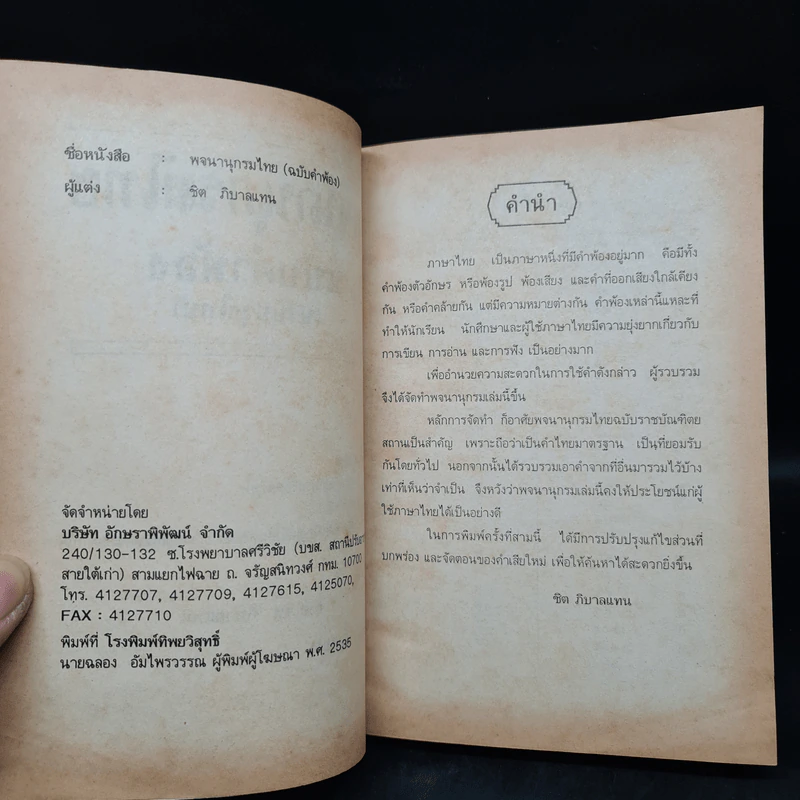 ชื่อหนังสือ : พจนานุกรมไทย (ฉบับคำพ้อง)
ผู้แต่ง : ชิต ภิบาลแทน
จัดจำหน่ายโดย
บริษัท อักษราพิพัฒน์ จำกัด
240/130-132 ซ.โรงพยาบาลศรีวิชัย (บขส. สถานี
สายใต้เก่า) สามแยกไฟฉาย ถ. จรัญสนิทวงศ์ กทม. 10700
โทร. 4127707, 4127709, 4127615, 4125070,
FAX : 4127710
พิมพ์ที่ โรงพิมพ์ทิพยวิสุทธิ์
นายฉลอง อัมไพรวรรณ ผู้พิมพ์ผู้โฆษณา พ.ศ. 2535
คำนำ
ภาษาไทย เป็นภาษาหนึ่งที่มีคำพ้องอยู่มาก คือมีทั้ง
คำพ้องตัวอักษร หรือพ้องรูป พ้องเสียง และคำที่ออกเสียงใกล้เคียง
กัน หรือคำคล้ายกัน แต่มีความหมายต่างกัน คำพ้องเหล่านี้แหละที่
ทำให้นักเรียน นักศึกษาและผู้ใช้ภาษาไทยมีความยุ่งยากเกี่ยวกับ
การเขียน การอ่าน และการฟัง เป็นอย่างมาก
เพื่ออำนวยความสะดวกในการใช้คำดังกล่าว ผู้รวบรวม
จึงได้จัดทำพจนานุกรมเล่มนี้ขึ้น
หลักการจัดทำ ก็อาศัยพจนานุกรมไทยฉบับราชบัณฑิตย
สถานเป็นสำคัญ เพราะถือว่าเป็นคำไทยมาตรฐาน เป็นที่ยอมรับ
กันโดยทั่วไป นอกจากนั้นได้รวบรวมเอาคำจากที่อื่นมารวมไว้บ้าง
เท่าที่เห็นว่าจำเป็น จึงหวังว่าพจนานุกรมเล่มนี้คงให้ประโยชน์แก่ผู้
ใช้ภาษาไทยได้เป็นอย่างดี
ในการพิมพ์ครั้งที่สามนี้ ได้มีการปรับปรุงแก้ไขส่วนที่
บกพร่อง และจัดตอนของคำเสียใหม่ เพื่อให้ค้นหาได้สะดวกยิ่งขึ้น
ชิต ภิบาลแทน